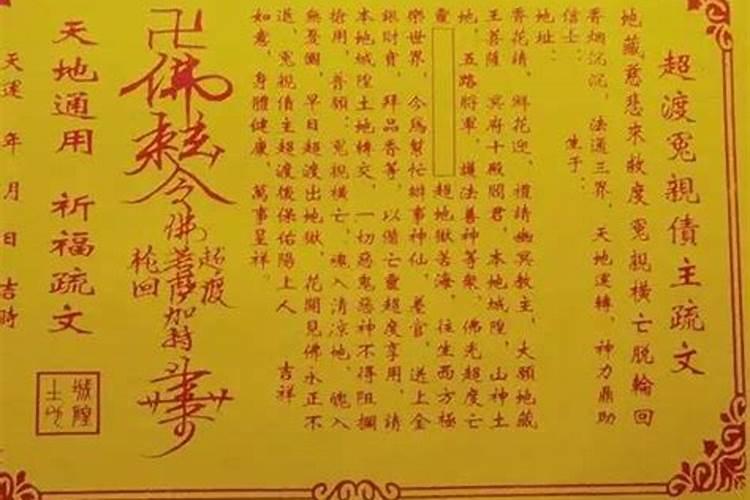 超渡冤親債主疏文
地藏慈悲來救度 冤親橫亡脫輪回
香烟沉沉，法通三界，天地運轉，神力鼎助
信士： 生于：
地址：
香花請，鮮花迎，禮請幽冥教主，大願地藏
王菩薩 冥府十殿閻君，本地城隍，山神土
地，五路將軍，護法善神等眾，佛光超度亡
靈 超地獄苦海，往生西方極
樂世界，今為幫忙辦事神仙，差官，送上金
銀財寶，拜品香等，以備亡靈超度享用，請
本地城隍土地轉交，一切惡鬼惡神不得阻攔
搶用，普願：冤親橫亡，魂入清凉地，魄入
無憂國，早日超渡出地獄，花開見佛永正不
退，冤親債主超渡後保佑陽上人 吉祥
如意，身體健康，萬事呈祥。
卍佛
令佛菩薩加持
超度
輪回
天地通用 祈福疏文
城隍
土地
天運 年 月 日 吉時